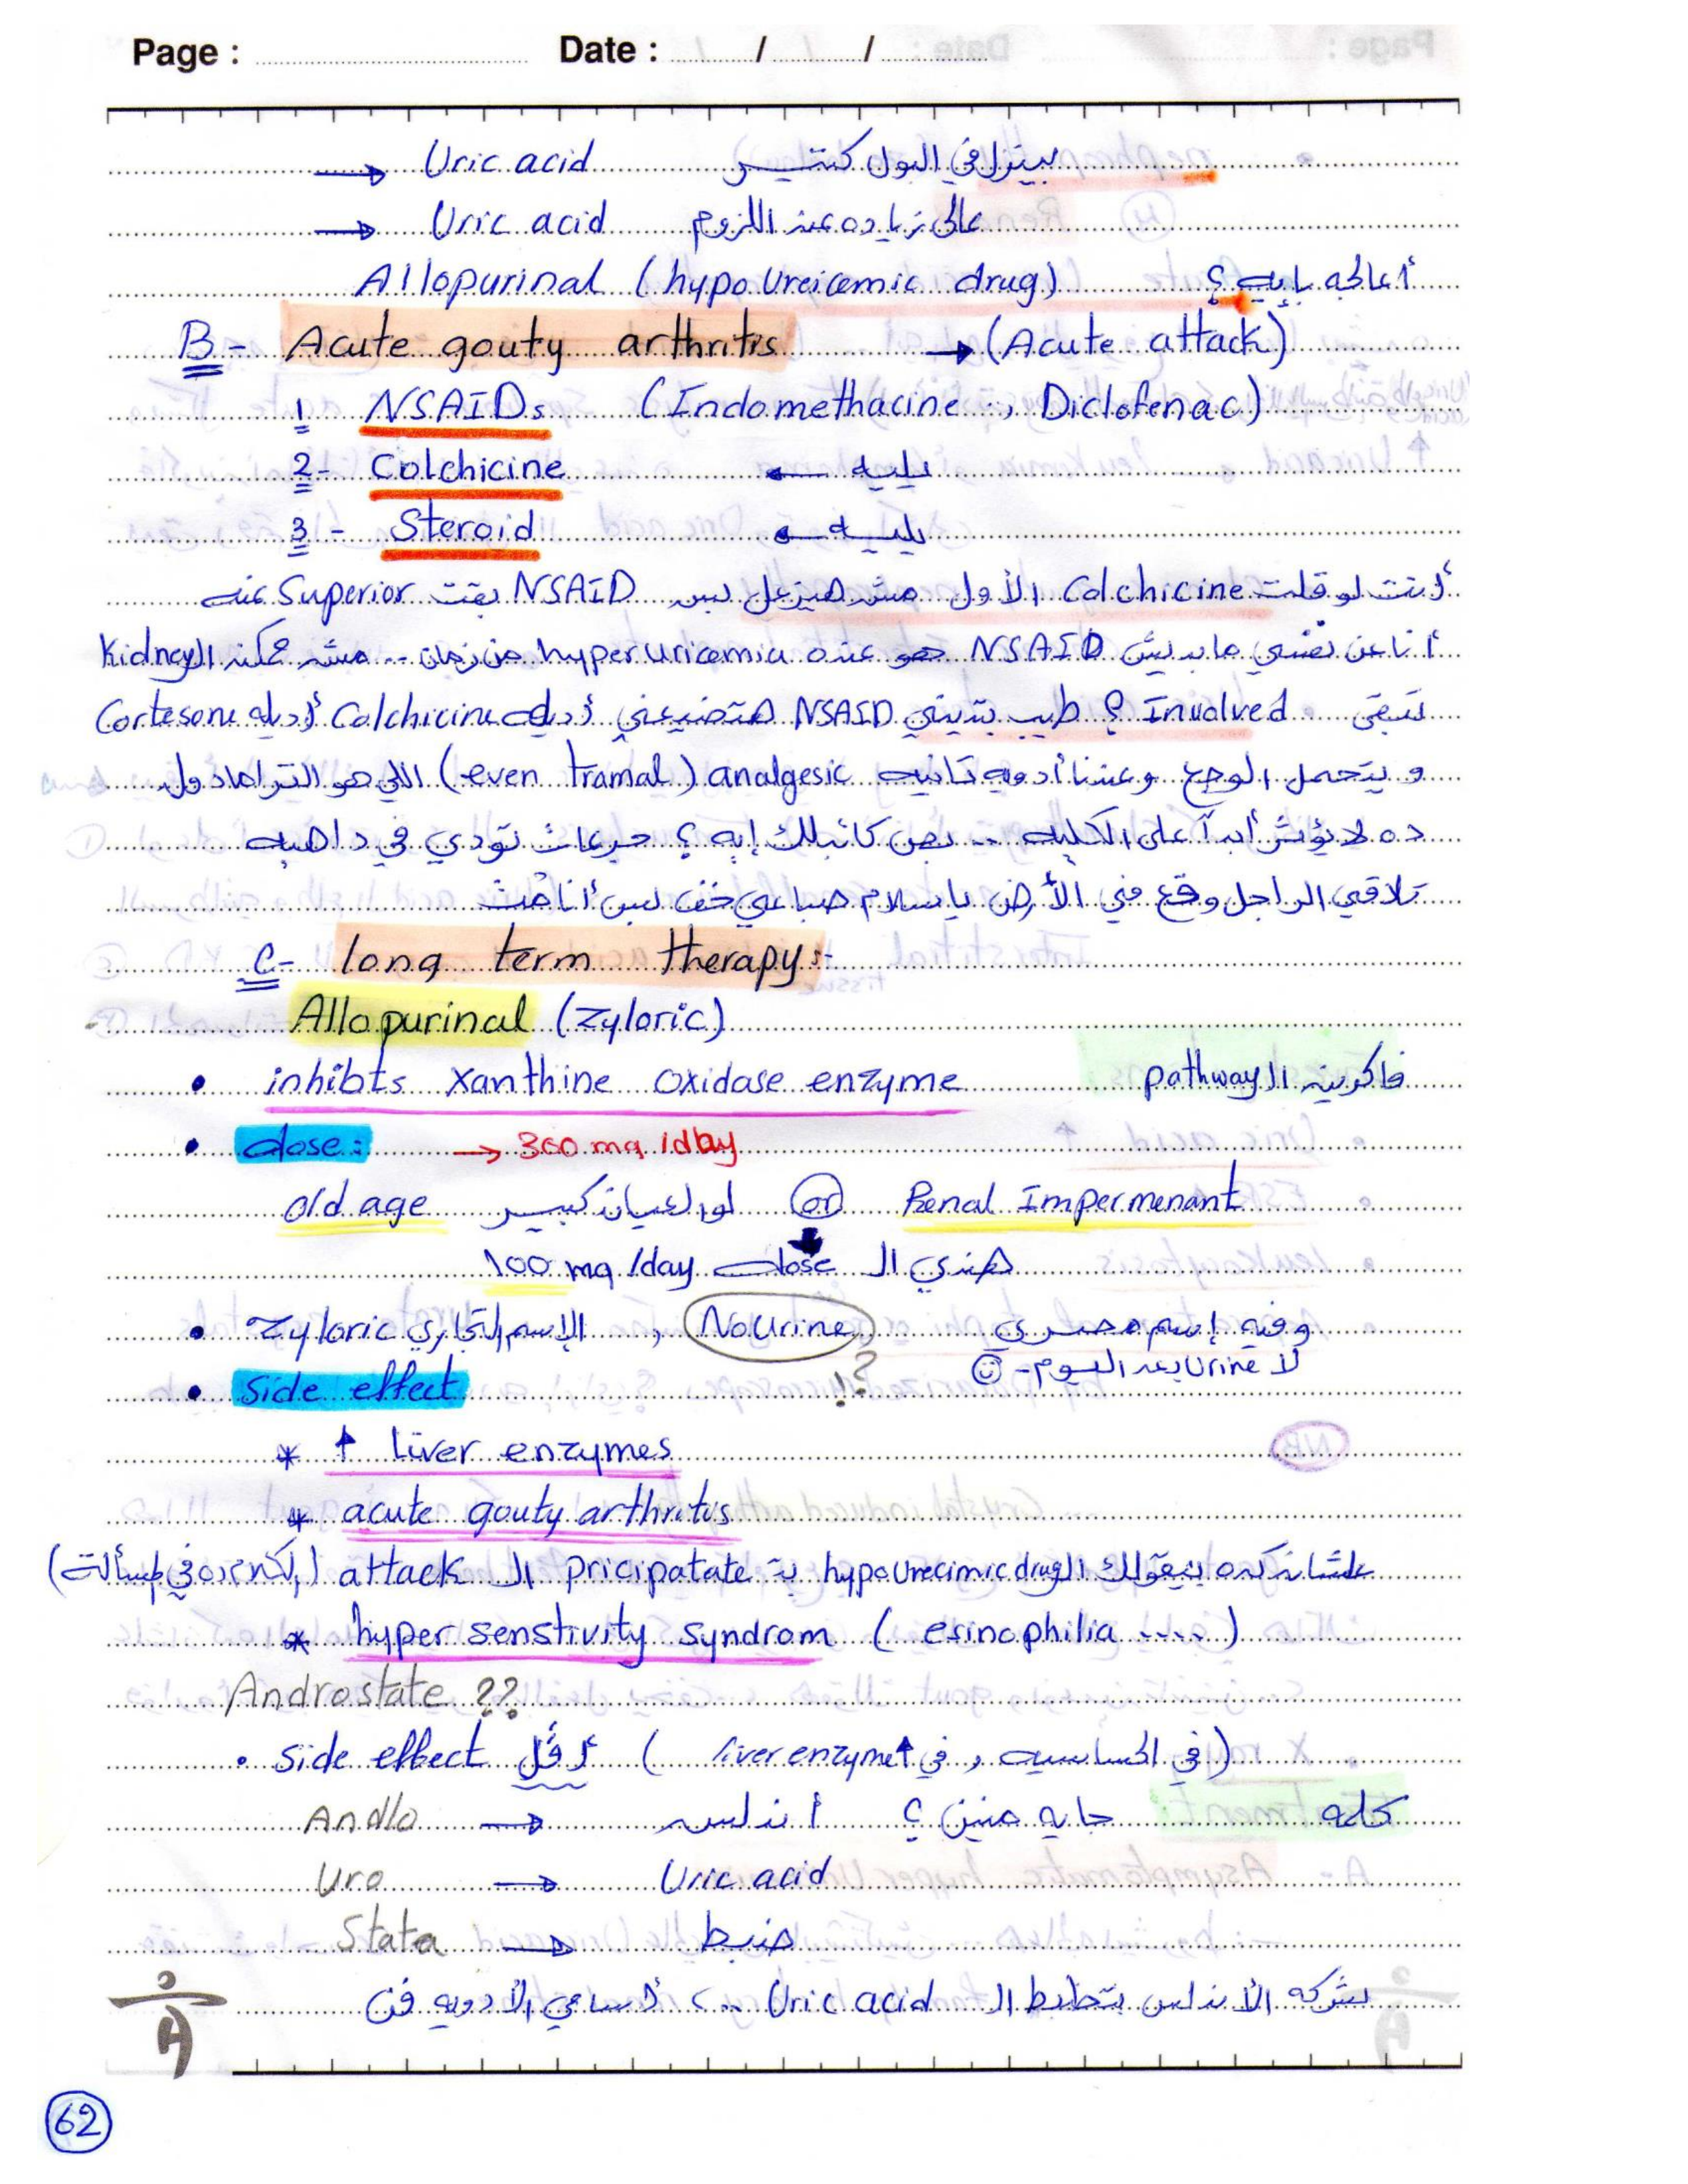 Page : Date : / /
→ Uric acid بينزل في البول كتير
→ Uric acid عالى زياده عند اللزوم
Allopurinal (hypo Ureicemic drug) أعالجه بإيه ؟
B- Acute gouty arthritis → (Acute attack)
1 NSAIDs (Indomethacine , Diclofenac)
2- Colchicine يليه ←
3- Steroid يليه ←
أنت لو قلت Colchicine الأول مش هيزعل بس NSAID بقت Superior عنه
أنا عن نفسي ما بديش NSAID هو عنده hyperuricemia من زمان .. مش ممكن الـ Kidney
تبقى Involved ؟ طيب بتديني NSAID هتضيعني أديله Colchicine أديله Cortesone
و يتحمل الوجع وعندنا أدويه تانيه analgesic (even tramal) اللي هو الترامادول
ده لا يؤثر أبداً على الكليه .. بص كاتبلك إيه ؟ جرعات تودي في داهيه
تلاقي الراجل وقع في الأرض يا سلام صباعي خف بس أنا مُت
C- long term therapy:-
Allopurinal (Zyloric)
• inhibts xanthine oxidase enzyme فاكرين الـ pathway
• dose: → 300 mg /day
old age لو العيان كبير or Renal Impermenant
هندي الـ dose 100 mg /day
• Zyloric الإسم التجاري , NoUrine وفيه إسم مصري
لا Urine بعد اليوم -
!?
• Side effect
* ↑ liver enzymes
* acute gouty arthritis
علشان كده بيقولك الـ hypoUrecimic drug بتـ pricipatate الـ attack
* hyper senstivity syndrom ( esinophilia .... )
Androstate ??
• side effect أقل ( في الحساسيه , في ↑ liver enzyme )
Andlo → أندلس كلمه جايه منين ؟
Uro → Uric acid
Stata → ضبط
شركه الأندلس بتظبط الـ Uric acid .. أسامي الأدويه فن
62